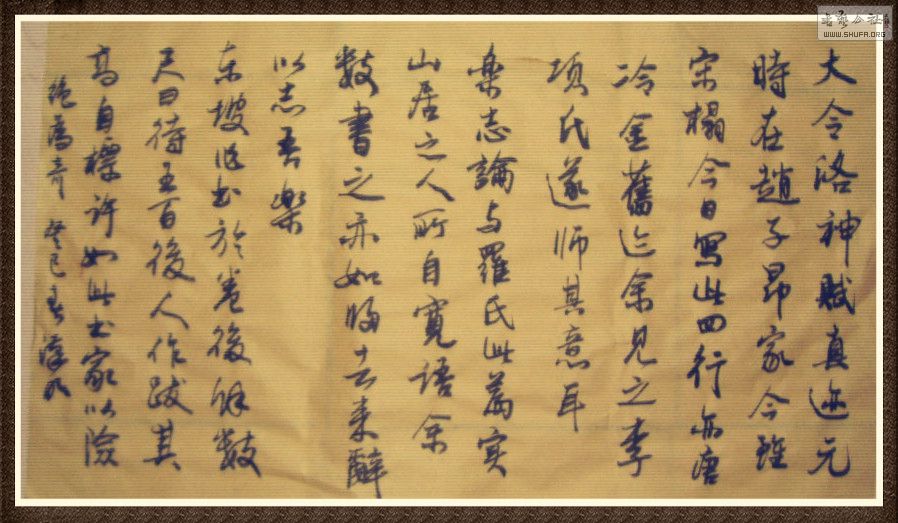 大令洛神賦真迹元
時在趙子昂家今雖
宋榻今日寫此四行亦唐
冷金舊迹余見之李
項氏遂师其意耳
楽志論与羅氏此篇实
山居之人所自寬語余
数書之亦如归去来辭
以志吾楽
东坡作书於卷後餘数
尺曰待五百後人作跋其
高自標许如此书家以險
绝為奇 癸巳春
书艺公社
WWW.SHUFA.ORG